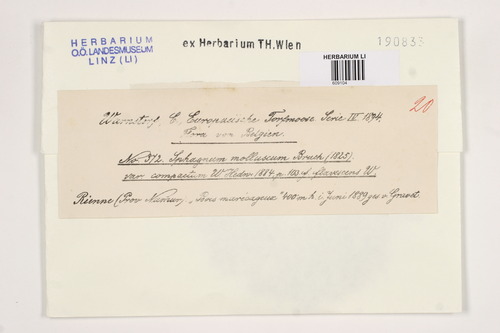 HERBARIUM
O.Ö. LANDESMUSEUM
LINZ (LI)
ex Herbarium TH.Wien
190833
HERBARIUM LI
20
Warnstorf, C. Europaeische Torfmoose Serie IV 1894.
Flora von Belgien.
No 372. Sphagnum molluscum Bruch (1825).
var compactum W Hedw 1884, p. 103 f. flavescens W.
Rienne (Prov Namur) "Fons marécageux" 400 m h. i. Juni 1889 ges v. Gravet.